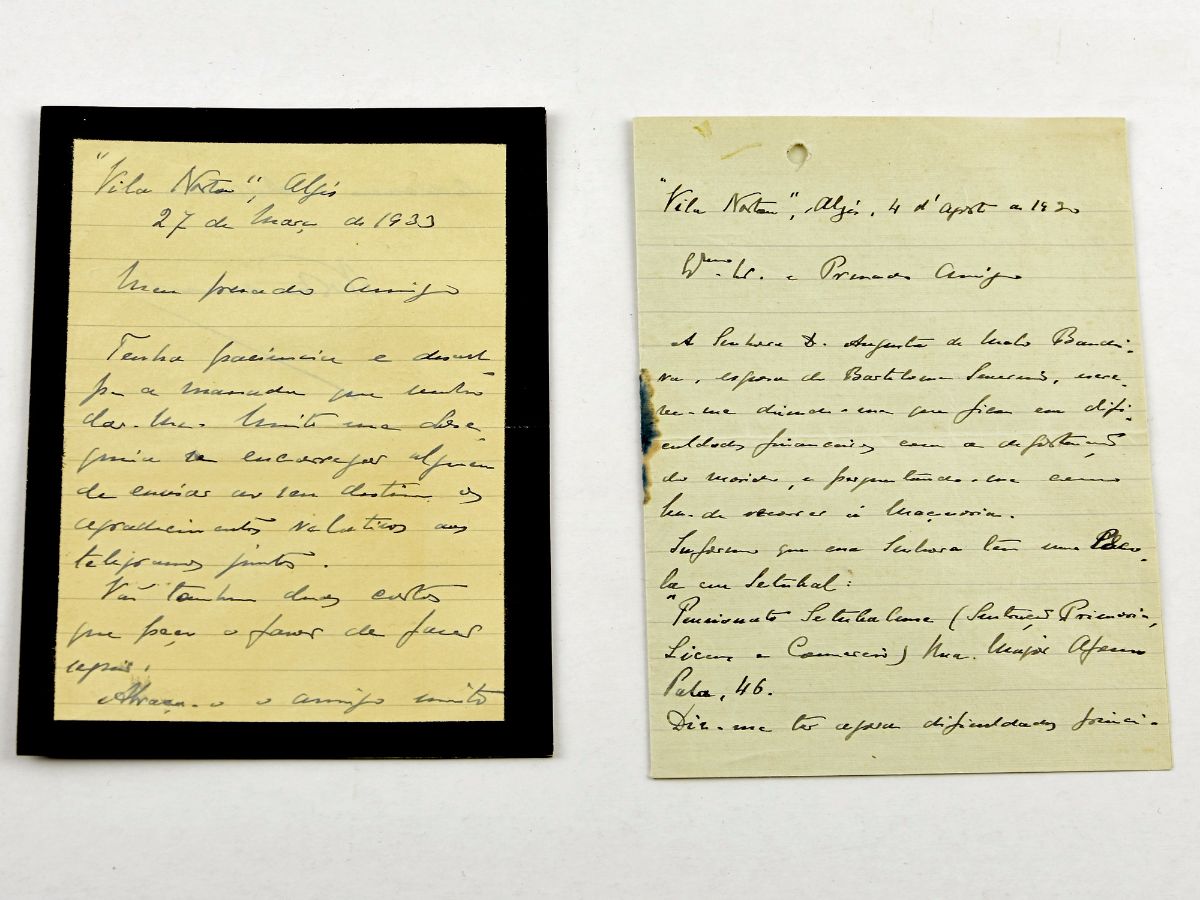 "Vila Norton", Algés
27 de Março de 1933
Meu presado Amigo
Tenha paciencia e descul-
pe a massada que venho
dar-lhe. Muito me obse-
quia se encarregar alguem
de enviar ao seu destino os
agradecimentos relativos aos
telegramas juntos.
Vão tambem duas cartas
que peço o favor de fazer
seguir.
Abraça-o o amigo muito
"Vila Norton", Algés, 4 d'Agosto de 1930
e Presado Amigo
A Senhora D. Augusta de Melo Bandei-
ra, esposa de Bartolomeu Severino, escre-
ve-me dizendo-me que ficou em difi-
culdades financeiras com a deportação
do marido, e perguntando-me como
ha-de recorrer á Maçonaria.
Informo que essa Senhora tem uma Esco-
la em Setubal:
"Pensionato Setubalense (Instrução Primaria,
Liceus e Comercio) Rua Major Afonso
Pala, 46.
Diz-me ter agora dificuldades